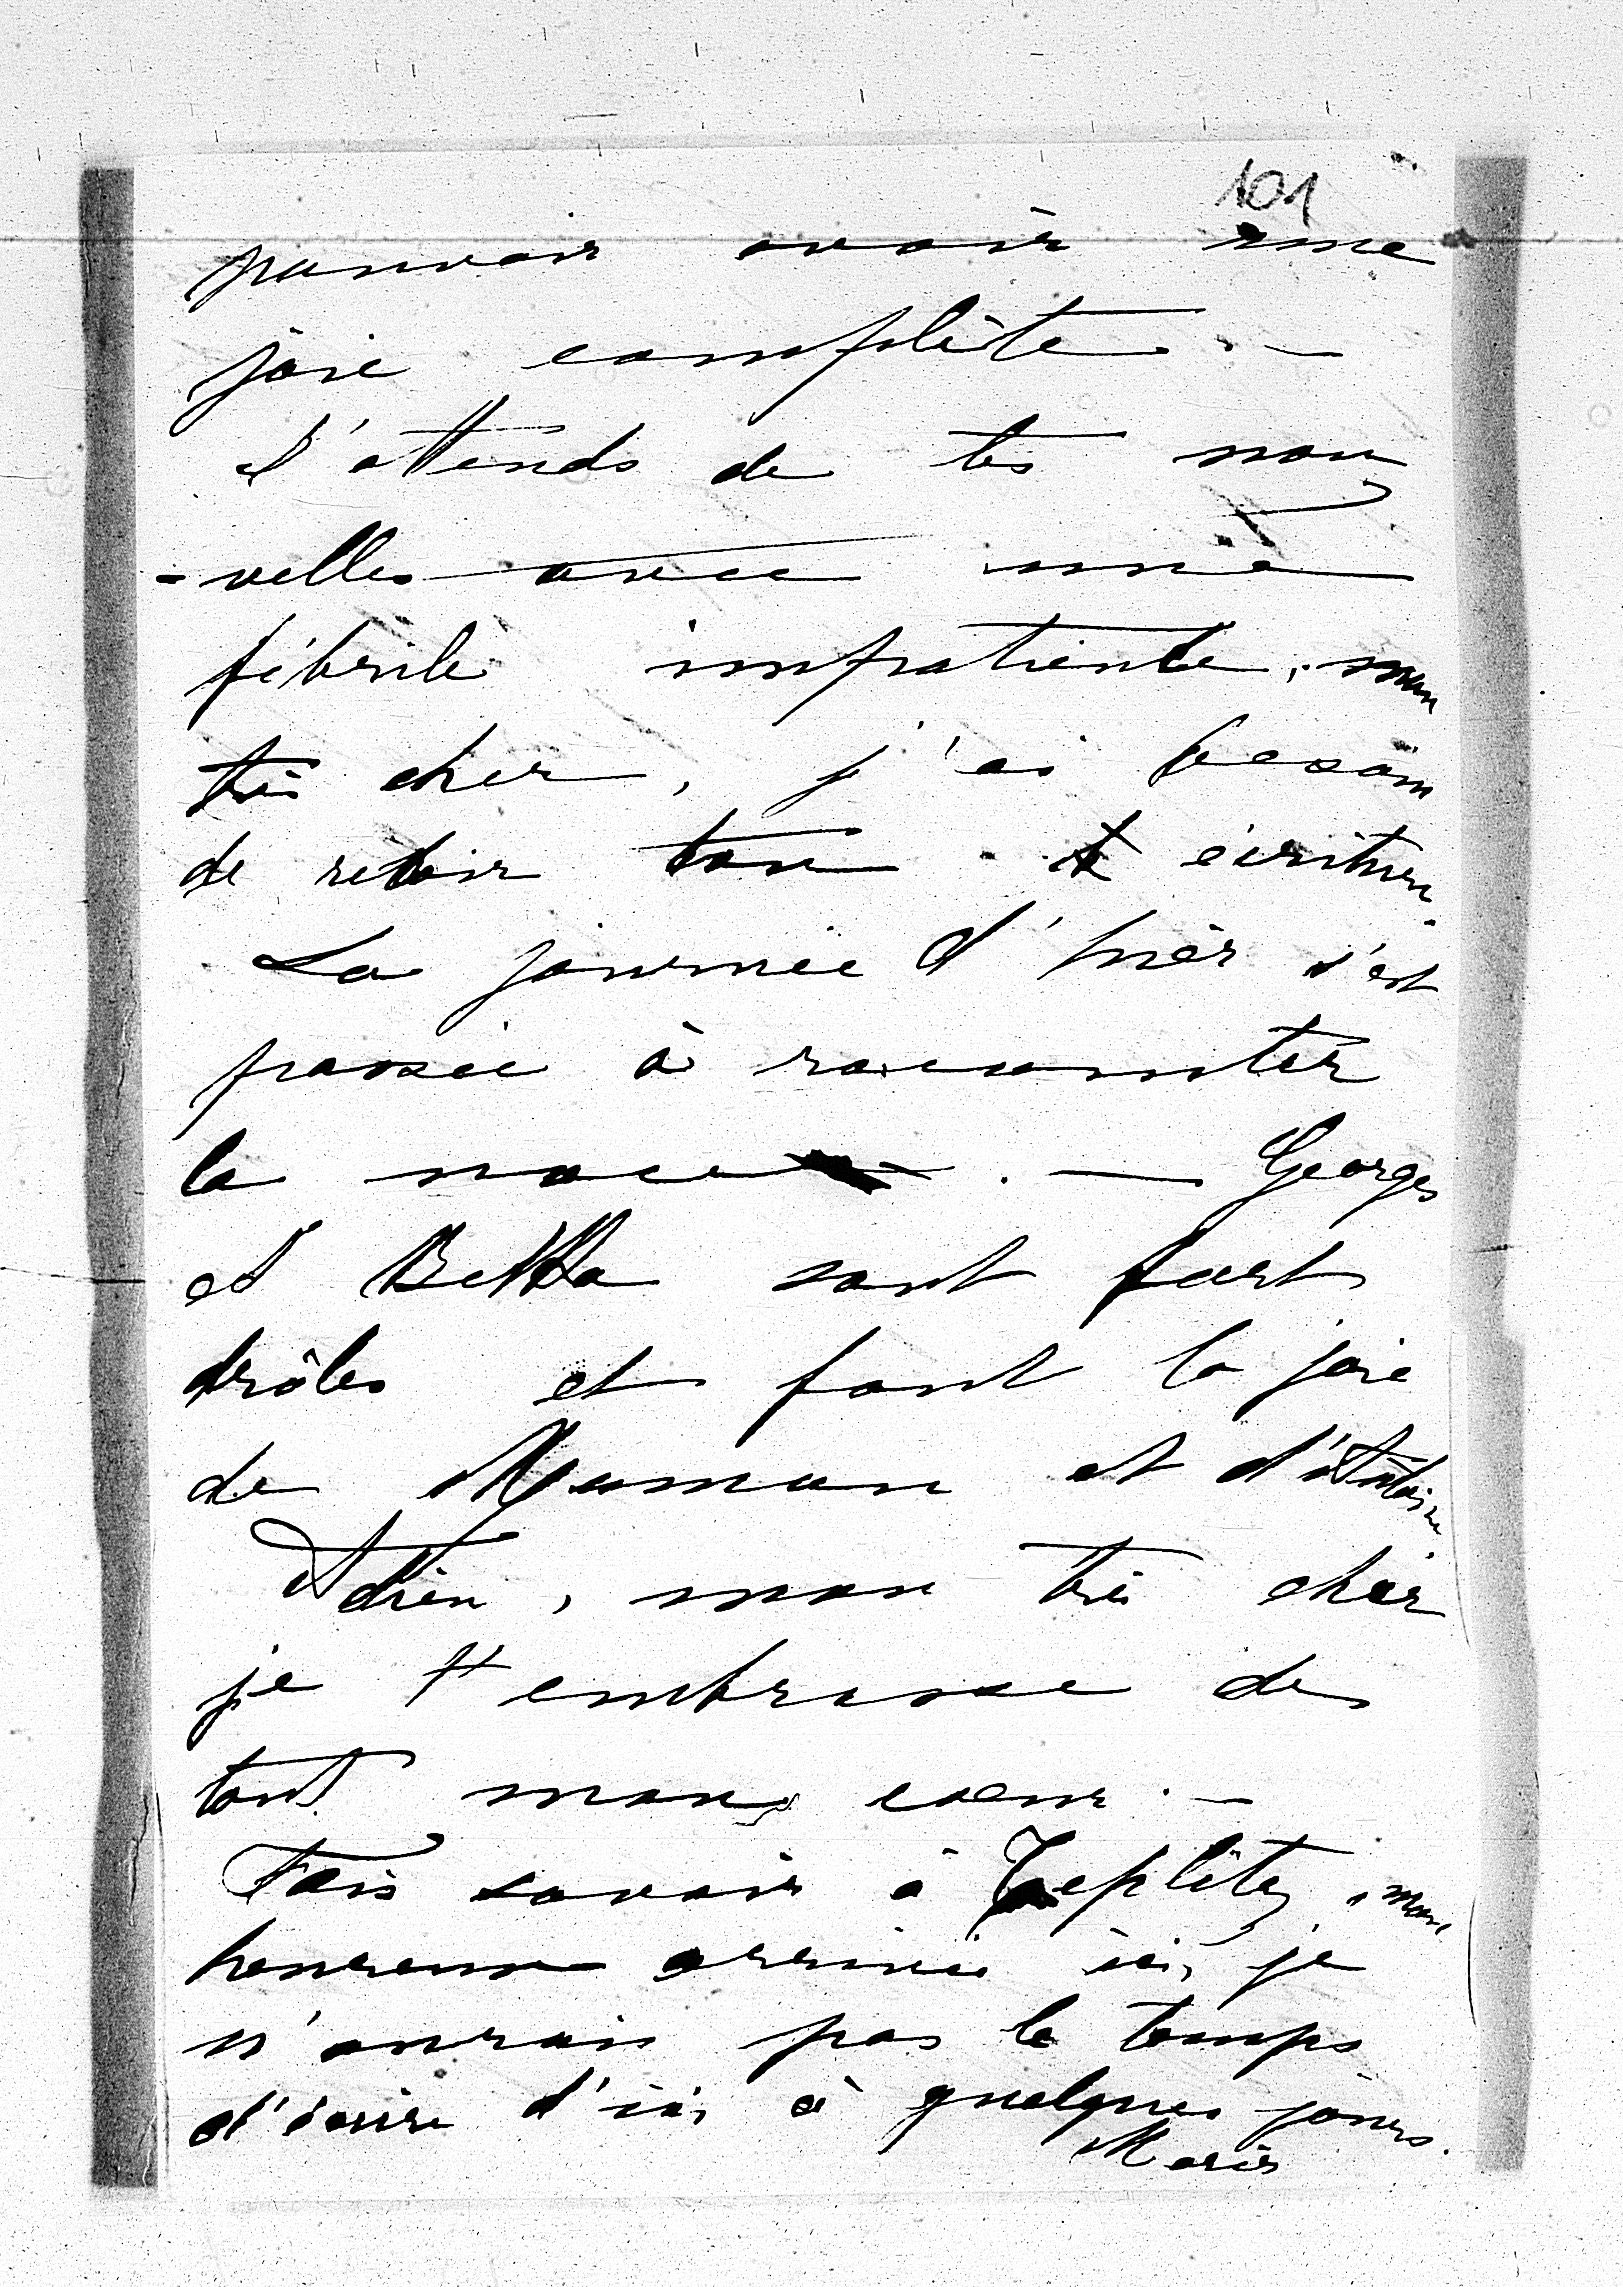 101
pouvoir avoir une
joie complète. —
J'attends de tes nou
-velles avec une
fébrile impatience, mon
très cher, j'ai besoin
de revoir ton écriture.
La journée d'hier s'est
passée à raconter
la noce. — Georges
et Betka sont fort
drôles et font la joie
de Maman et d'Antoine.
Adieu, mon très cher
je t'embrasse de
tout mon coeur. —
Fais savoir à Teplitz, mon
heureuse arrivée ici, je
n'aurais pas le temps
d'écrire d'ici à quelques jours.
Marie